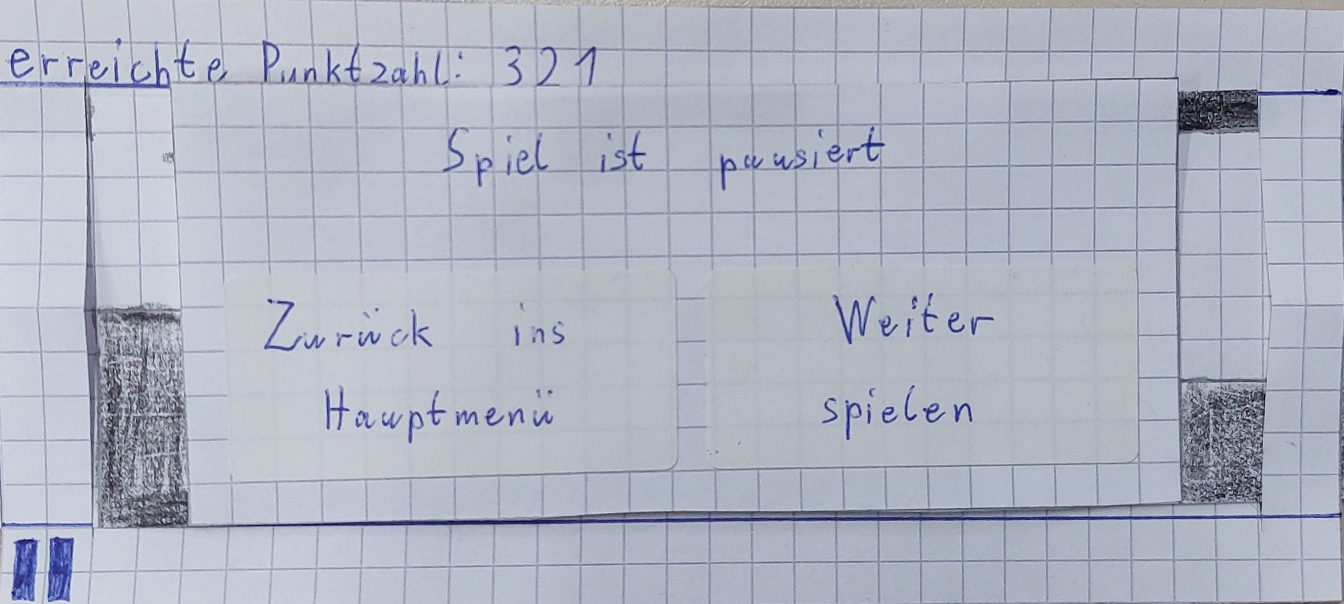 erreichte Punktzahl: 321
Spiel ist pausiert
Zurück ins
Hauptmenü
Weiter
spielen